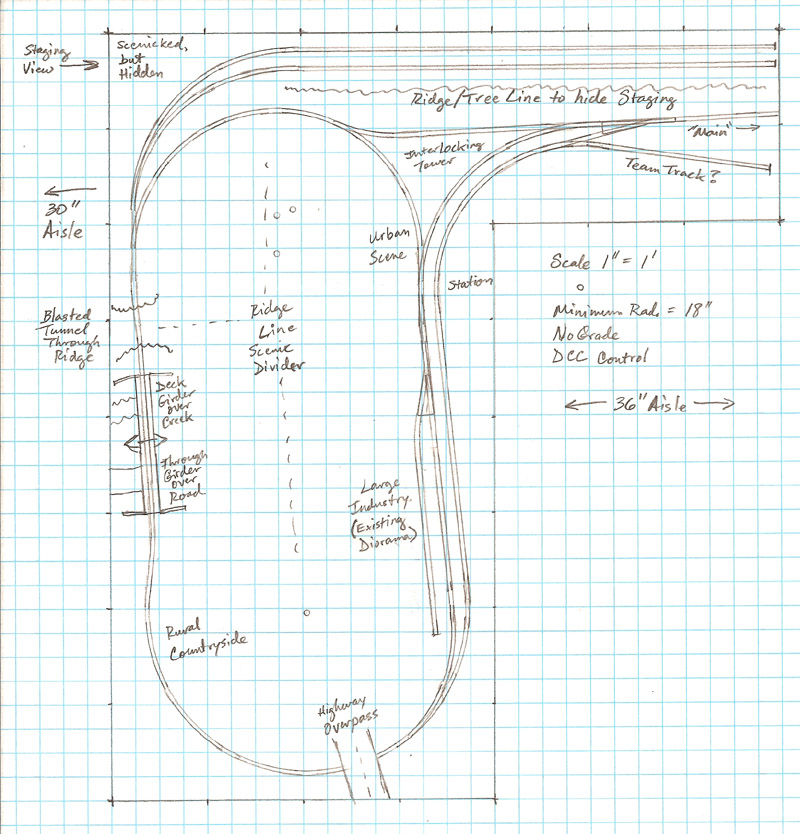 Staging
View
Scenicked,
but
Hidden
Ridge/Tree Line to hide Staging
"Main"
Interlocking
Tower
Team Track?
30"
Aisle
Urban
Scene
Station
Scale 1" = 1'
Minimum Rad. = 18"
No Grade
DCC Control
36" Aisle
Blasted
Tunnel
Through
Ridge
Ridge
Line
Scenic
Divider
Deck
Girder
over
Creek
Through
Girder
over
Road
Large
Industry.
(Existing
Diorama)
Rural
Countryside
Highway
Overpass